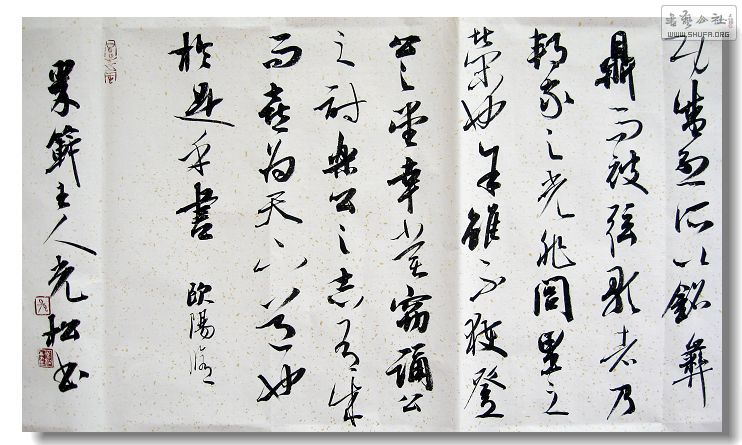 书艺公社
WWW.SHUFA.ORG
功盛烈所以銘彝
鼎而被弦歌者乃
邦家之光非閭里之
榮也余雖不獲登
公之堂幸嘗竊誦公
之詩樂公之志有成
而喜為天下道也
於是乎書 歐陽脩
主人光松书